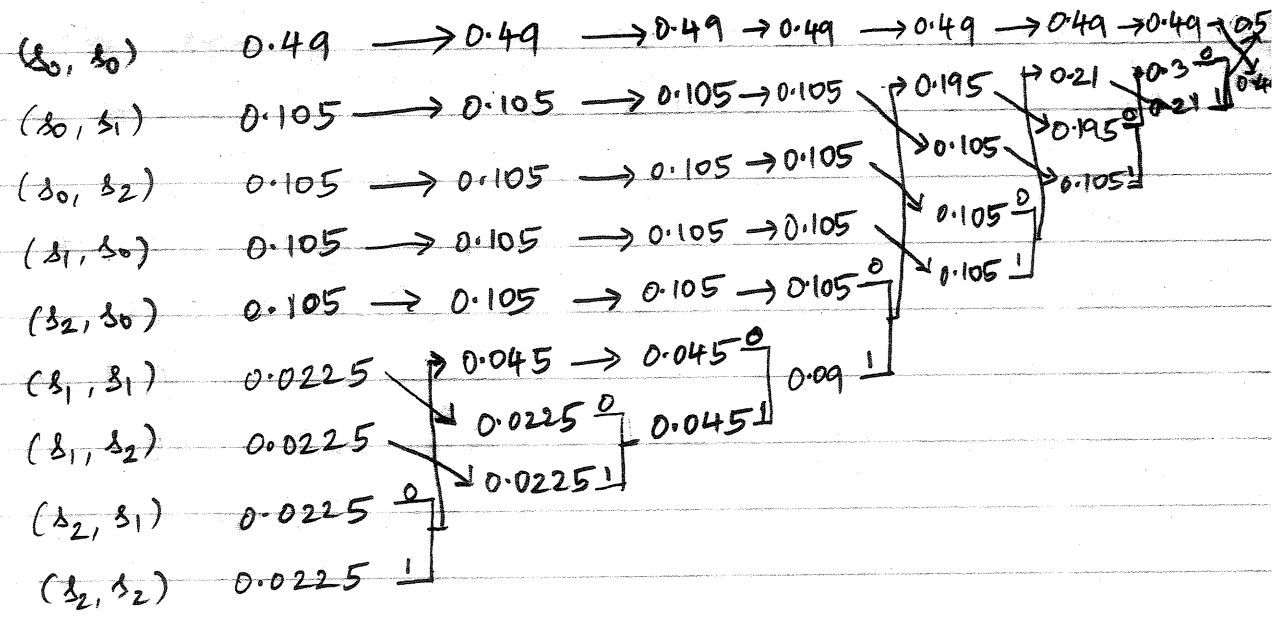 (s₀, s₀) 0.49 → 0.49 → 0.49 → 0.49 → 0.49 → 0.49 → 0.49 → 0.5
(s₀, s₁) 0.105 → 0.105 → 0.105 → 0.105 → 0.195 → 0.21 → 0.3 0 0.4
0.195 0 0.21 1
(s₀, s₂) 0.105 → 0.105 → 0.105 → 0.105 → 0.105 → 0.105 1
(s₁, s₀) 0.105 → 0.105 → 0.105 → 0.105 0.105 0
0.105 1
(s₂, s₀) 0.105 → 0.105 → 0.105 → 0.105 0
(s₁, s₁) 0.0225 → 0.045 → 0.045 0 0.09 1
(s₁, s₂) 0.0225 0.0225 0 0.045 1
0.0225 1
(s₂, s₁) 0.0225 0
(s₂, s₂) 0.0225 1